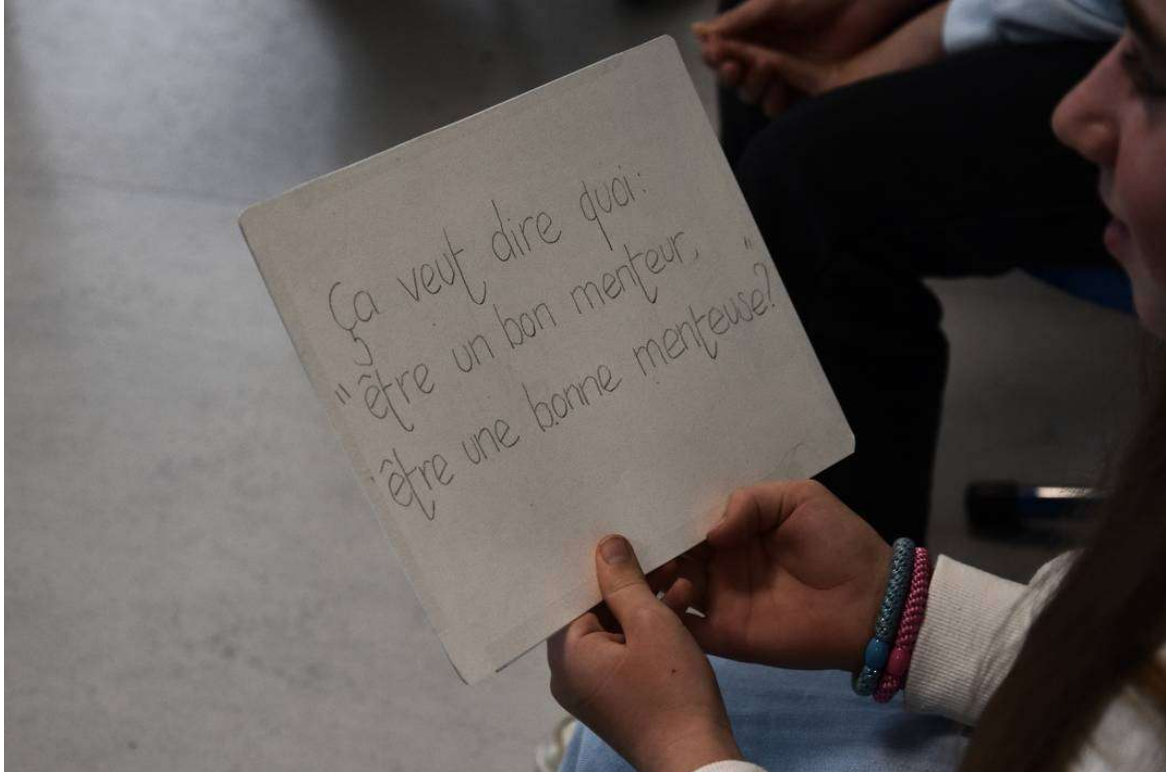 Ça veut dire quoi:
"être un bon menteur,
être une bonne menteuse"?